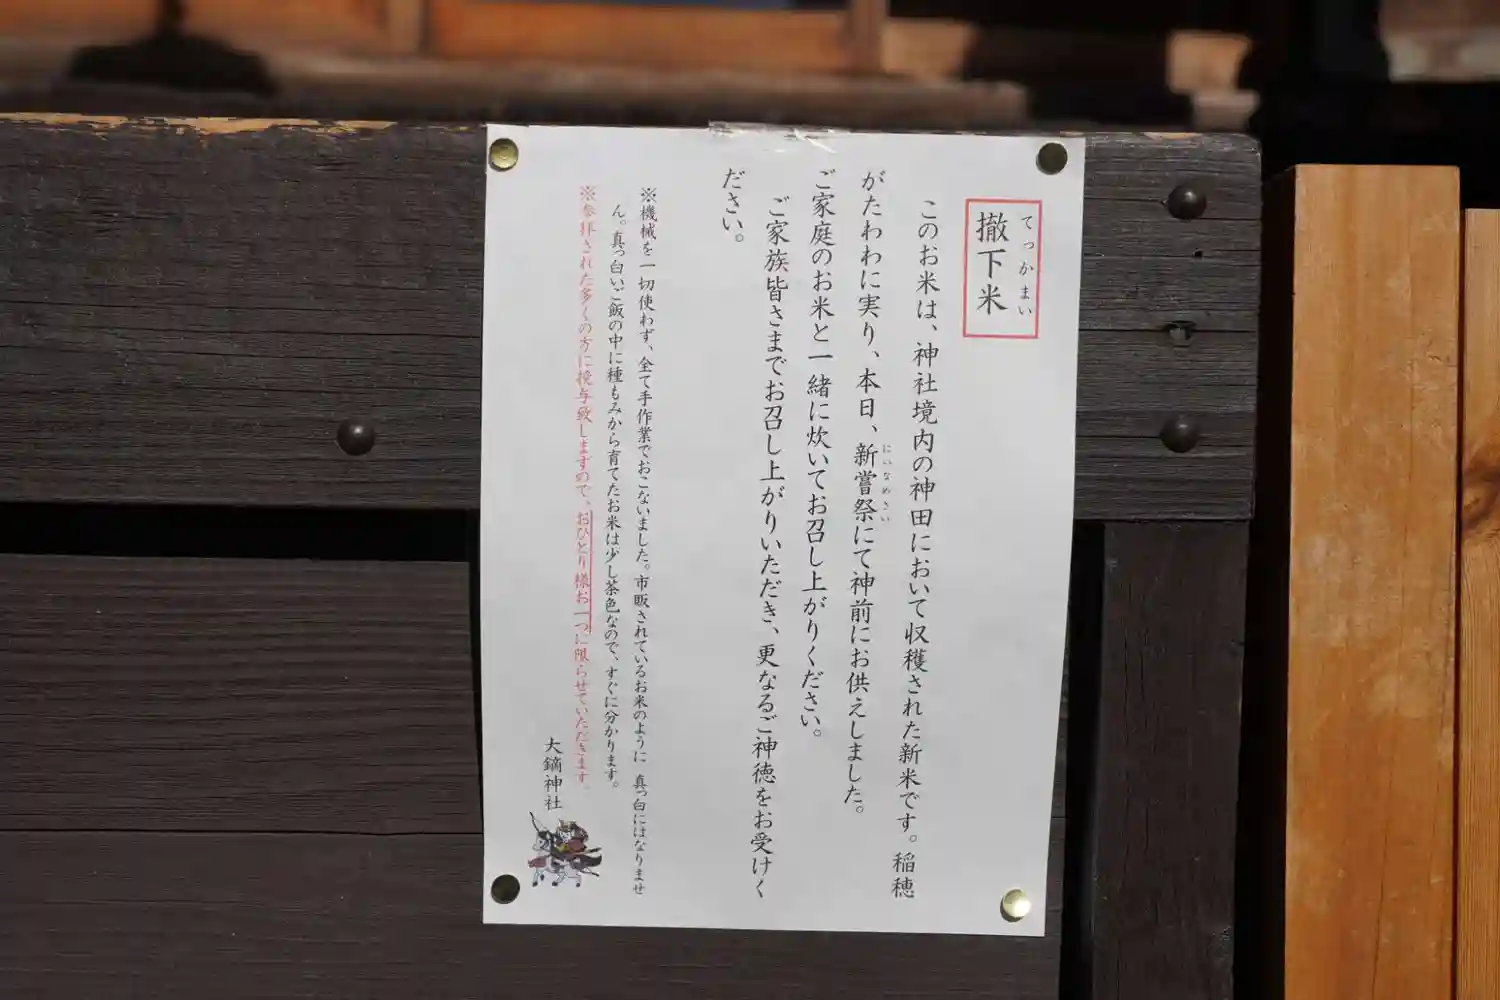 てっかまい
撤下米
このお米は、神社境内の神田において収穫された新米です。稲穂
がたわわに実り、本日、新嘗祭にて神前にお供えしました。
にいなめさい
ご家庭のお米と一緒に炊いてお召し上がりください。
ご家族皆さまでお召し上がりいただき、更なるご神徳をお受けく
ださい。
※機械を一切使わず、全て手作業でおこないました。市販されているお米のように 真っ白にはなりませ
ん。真っ白いご飯の中に種もみから育てたお米は少し茶色なので、すぐに分かります。
※参拝された多くの方に授与致しますので、おひとり様お一つに限らせていただきます。
大鏑神社